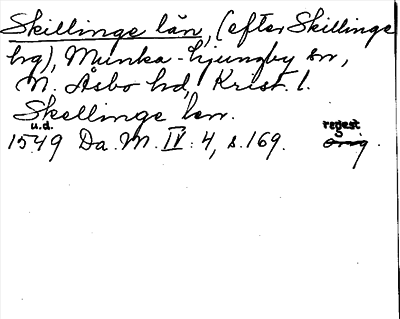 Skillinge län, (efter Skillinge
hg), Munka-Ljungby sn,
N. Åsbo hd, Krist. l.
Skellinge len.
u.d. regest
1549 Da. M. IV: 4, s. 169. orig.